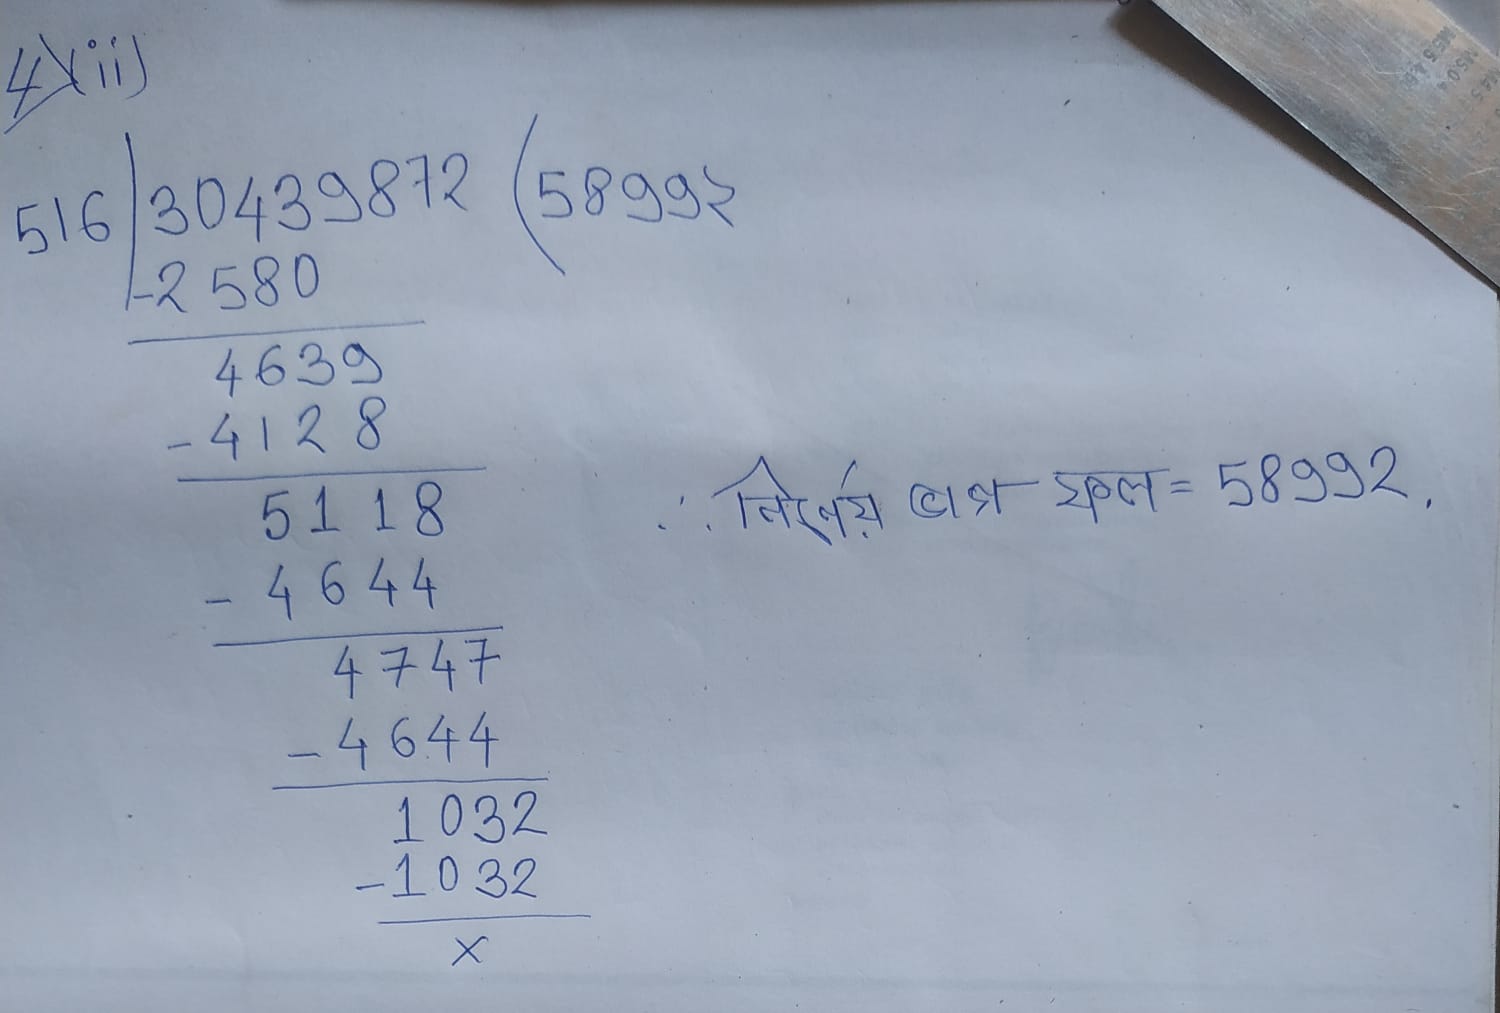 4)(ii)
516 | 30439872 ( 58992
-2580
4639
-4128
5118
-4644
4747
-4644
1032
-1032
×
∴ নির্ণেয় ভাগ ফল = 58992.